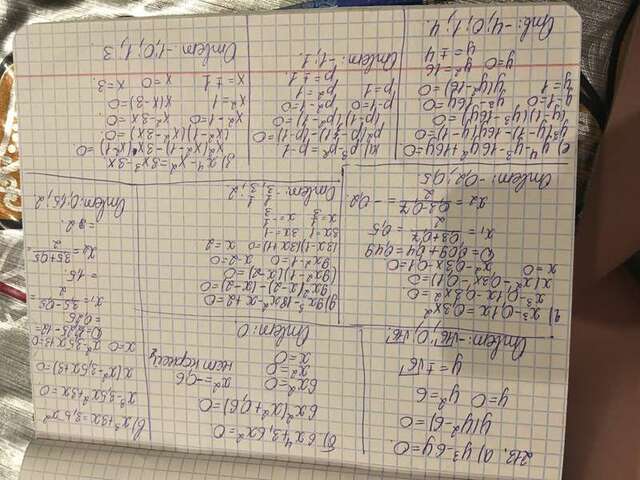 213. а) y³-6y=0.
y(y²-6)=0
y=0 y²=6
y=±√6
Ответ: -√6; 0; √6.
б) 6x⁴+3,6x²=0.
6x²(x²+0,6)=0.
6x²=0 x²=-0,6
x²=0 нет корней
x=0
Ответ: 0
в) x³+3x=3,5x²
x³-3,5x²+3x=0
x(x²-3,5x+3)=0
x=0 x²-3,5x+3=0
D=12,25-12=
=0,25
x₁=3,5-0,5/2=
=1,5
x₂=3,5+0,5/2
=2.
Ответ: 0; 1,5; 2
г) x³-0,1x=0,3x²
x³-0,1x-0,3x²=0
x(x²-0,3x-0,1)=0
x=0 x²-0,3x-0,1=0
D=0,09+0,4=0,49
x₁=0,3+0,7/2=0,5
x₂=0,3-0,7/2=-0,2.
Ответ: -0,2; 0; 0,5
д) 9x³-18x²-x+2=0
9x²(x-2)-(x-2)=0
(9x²-1)(x-2)=0
9x²-1=0 x-2=0
(3x-1)(3x+1)=0 x=2
3x=1 3x=-1
x=1/3 x=-1/3
Ответ: -1/3; 1/3; 2
е) y⁴-y³-16y²+16y=0.
y³(y-1)-16y(y-1)=0
(y-1)(y³-16y)=0
y-1=0 y³-16y=0.
y=1 y(y²-16)=0
y=0 y²=16
y=±4
Отв: -4; 0; 1; 4.
ж) p³-p²=p-1
p²(p-1)-(p-1)=0
(p-1)(p²-1)=0
p-1=0 p²-1=0
p=1 p²=1
p=±1.
Ответ: -1; 1.
з) x⁴-x²=3x³-3x
x²(x²-1)-3x(x²-1)=0.
(x²-1)(x²-3x)=0.
x²-1=0 x²-3x=0
x²=1 x(x-3)=0
x=±1 x=0 x=3.
Ответ: -1; 0; 1; 3